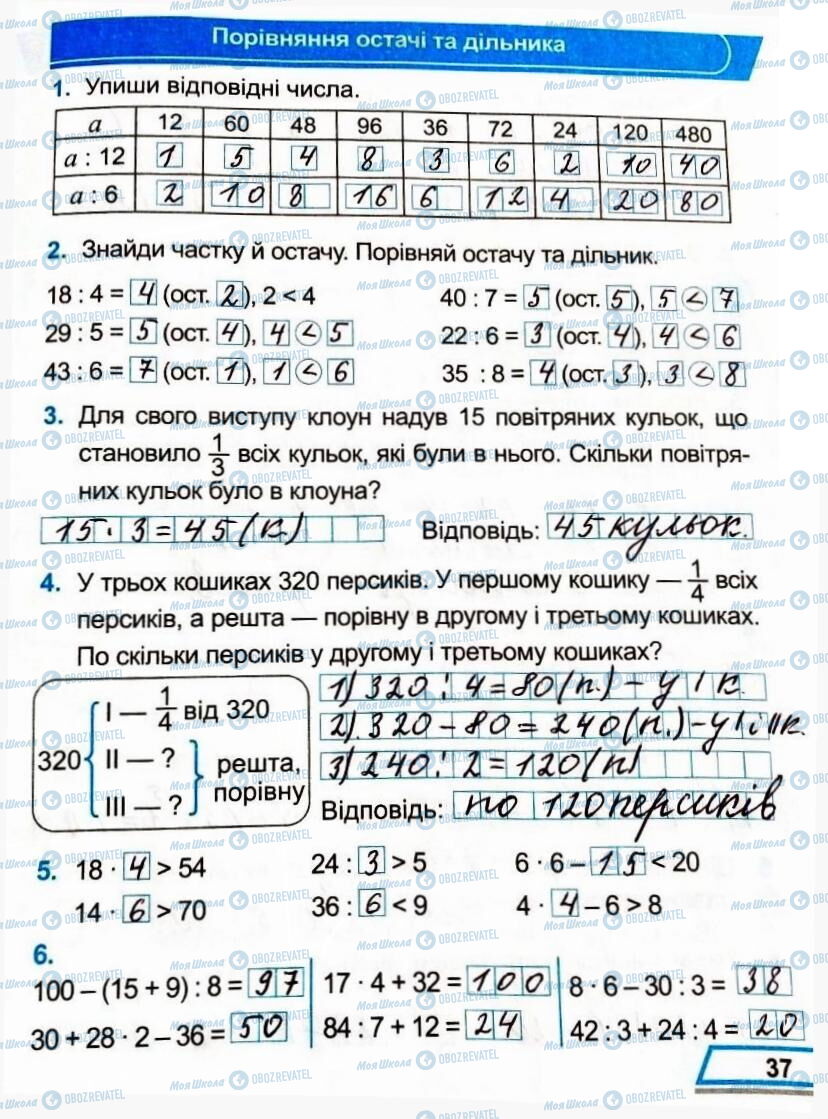 Порівняння остачі та дільника
1. Упиши відповідні числа.
a 12 60 48 96 36 72 24 120 480
a : 12 1 5 4 8 3 6 2 10 40
a : 6 2 10 8 16 6 12 4 20 80
2. Знайди частку й остачу. Порівняй остачу та дільник.
18 : 4 = 4 (ост. 2), 2 < 4 40 : 7 = 5 (ост. 5), 5 < 7
29 : 5 = 5 (ост. 4), 4 < 5 22 : 6 = 3 (ост. 4), 4 < 6
43 : 6 = 7 (ост. 1), 1 < 6 35 : 8 = 4 (ост. 3), 3 < 8
3. Для свого виступу клоун надув 15 повітряних кульок, що
становило 1/3 всіх кульок, які були в нього. Скільки повітря-
них кульок було в клоуна?
15 · 3 = 45 (к) Відповідь: 45 кульок.
4. У трьох кошиках 320 персиків. У першому кошику — 1/4 всіх
персиків, а решта — порівну в другому і третьому кошиках.
По скільки персиків у другому і третьому кошиках?
320 I — 1/4 від 320
II — ?
III — ?
решта,
порівну
1) 320 : 4 = 80 (п.) – у I к.
2) 320 – 80 = 240 (п.) – у I і II к.
3) 240 : 2 = 120 (п)
Відповідь: по 120 персиків
5. 18 · 4 > 54 24 : 3 > 5 6 · 6 – 15 < 20
14 · 6 > 70 36 : 6 < 9 4 · 4 – 6 > 8
6.
100 – (15 + 9) : 8 = 97 17 · 4 + 32 = 100 8 · 6 – 30 : 3 = 38
30 + 28 · 2 – 36 = 50 84 : 7 + 12 = 24 42 : 3 + 24 : 4 = 20
37
МояШкола OBOZREVATEL